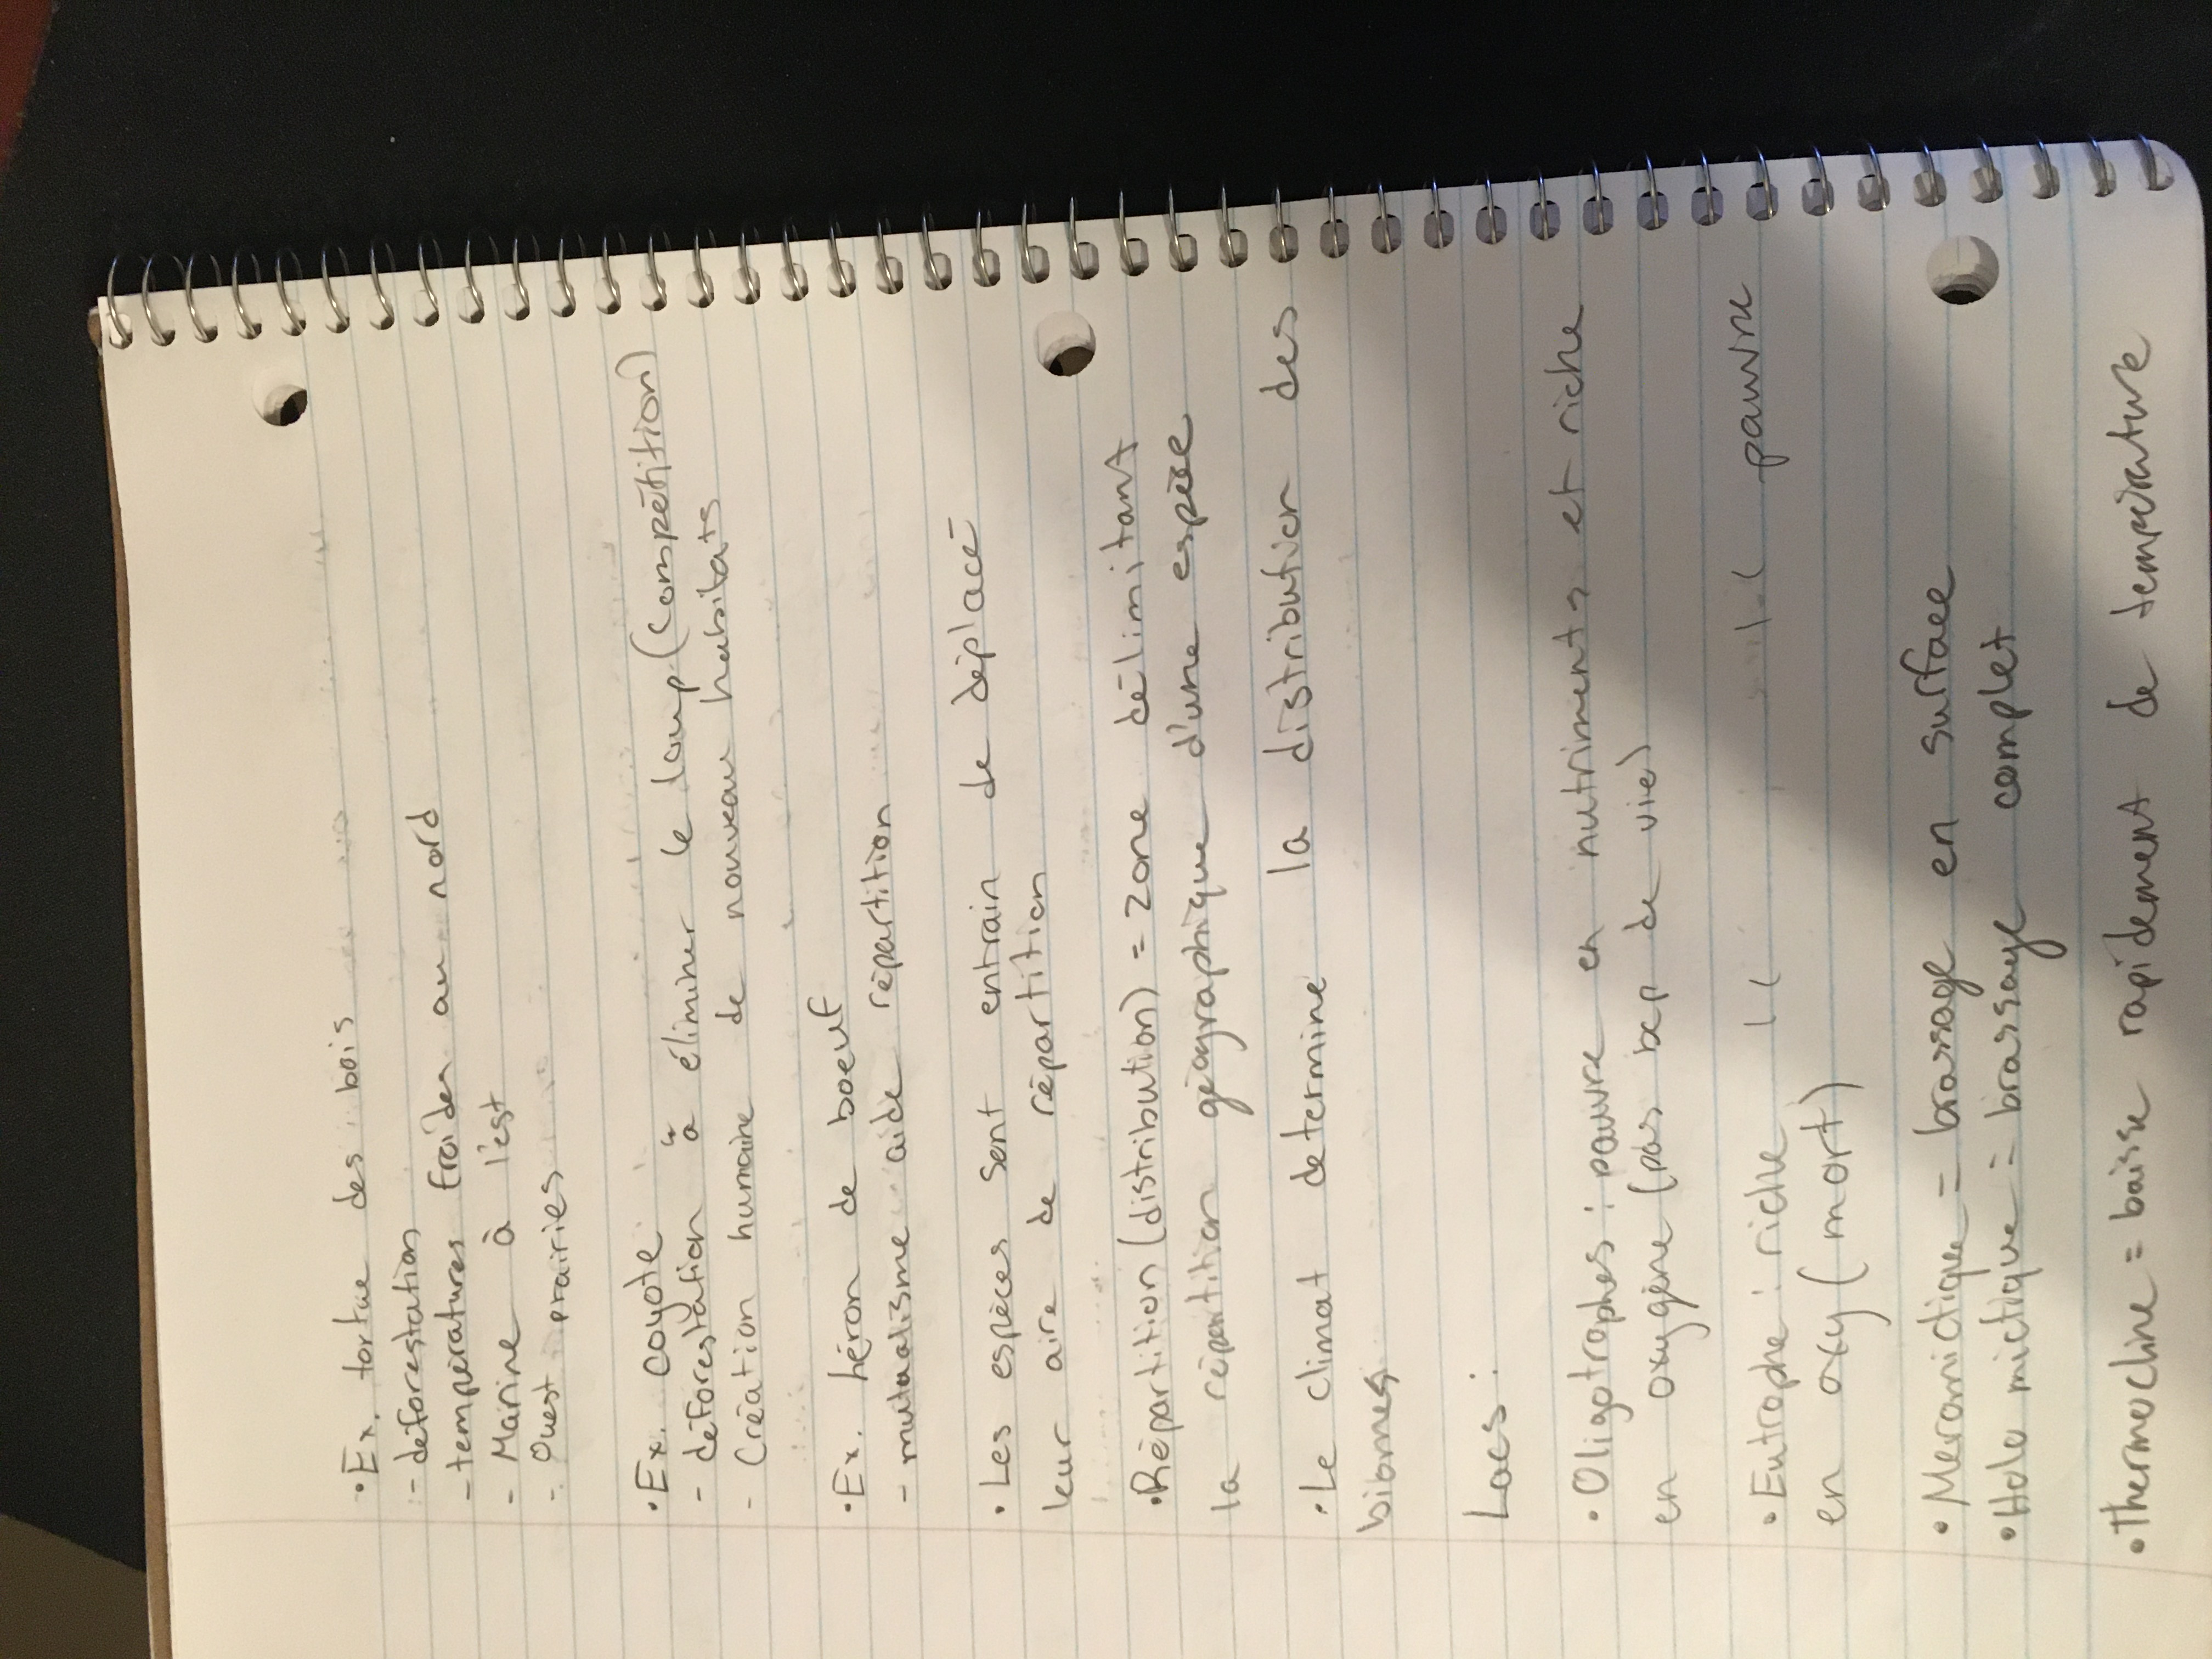 • Ex. tortue des bois
- déforestation
- températures froides au nord
- Marine à l'est
- Ouest prairies
• Ex. coyote
- déforestation à éliminer le loup (compétition)
- Création humaine de nouveau habitats
• Ex. héron de boeuf
- mutualisme aide répartition
• Les espèces sont entrain de déplacé
leur aire de répartition
• Répartition (distribution) = zone délimitant
la répartition géographique d'une espèce
• Le climat determine la distribution des
biomes
Lacs :
• Oligotrophes : pauvre en nutriments et riche
en oxygène (pas bcp de vie)
• Eutrophe : riche " " pauvre
en oxy (mort)
• Meromictique = brassage en surface
• Holo mictique = brassage complet
• thermocline = baisse rapidement de température